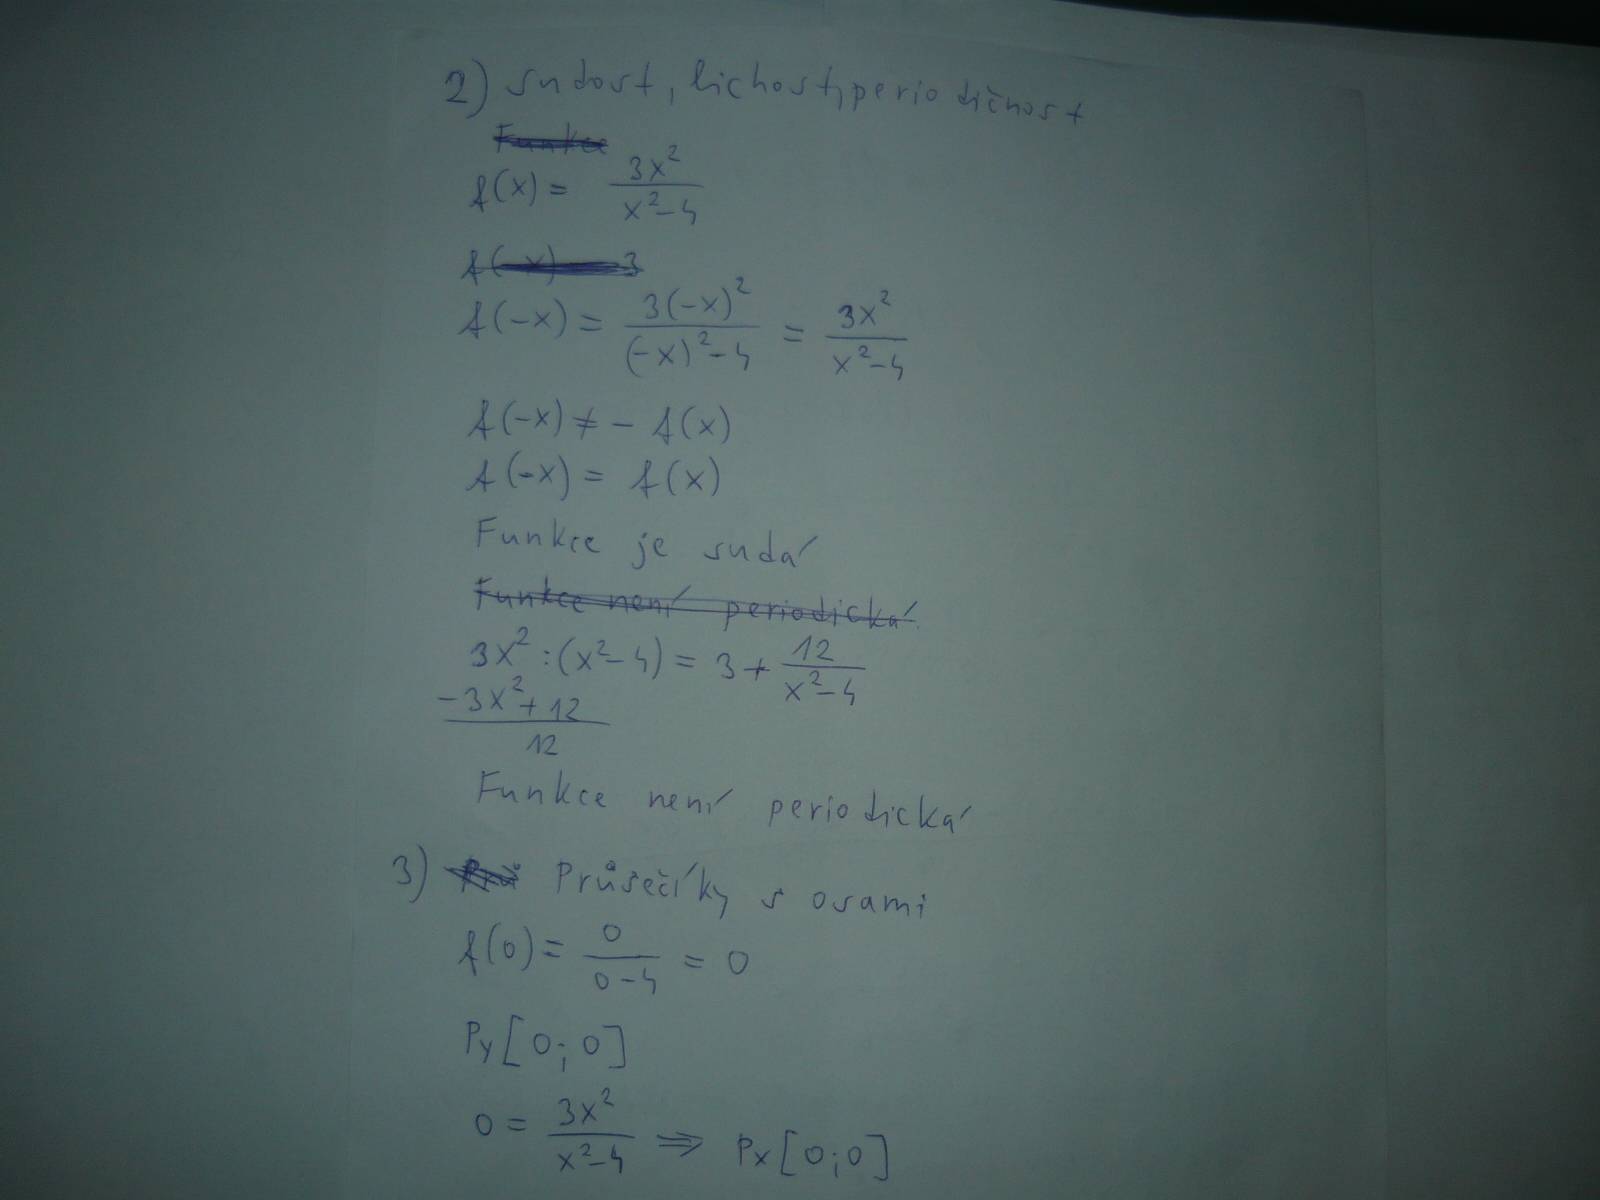 2) sudost, lichost, periodičnost
Funkce
f(x) = 3x²/(x²-4)
f(-x) 3
f(-x) = 3(-x)²/((-x)²-4) = 3x²/(x²-4)
f(-x) ≠ - f(x)
f(-x) = f(x)
Funkce je sudá
Funkce není periodická
3x² : (x²-4) = 3 + 12/(x²-4)
-3x²+12
12
Funkce není periodická
3) Prů Průsečíky s osami
f(0) = 0/(0-4) = 0
Py[0;0]
0 = 3x²/(x²-4) ⇒ Px[0;0]